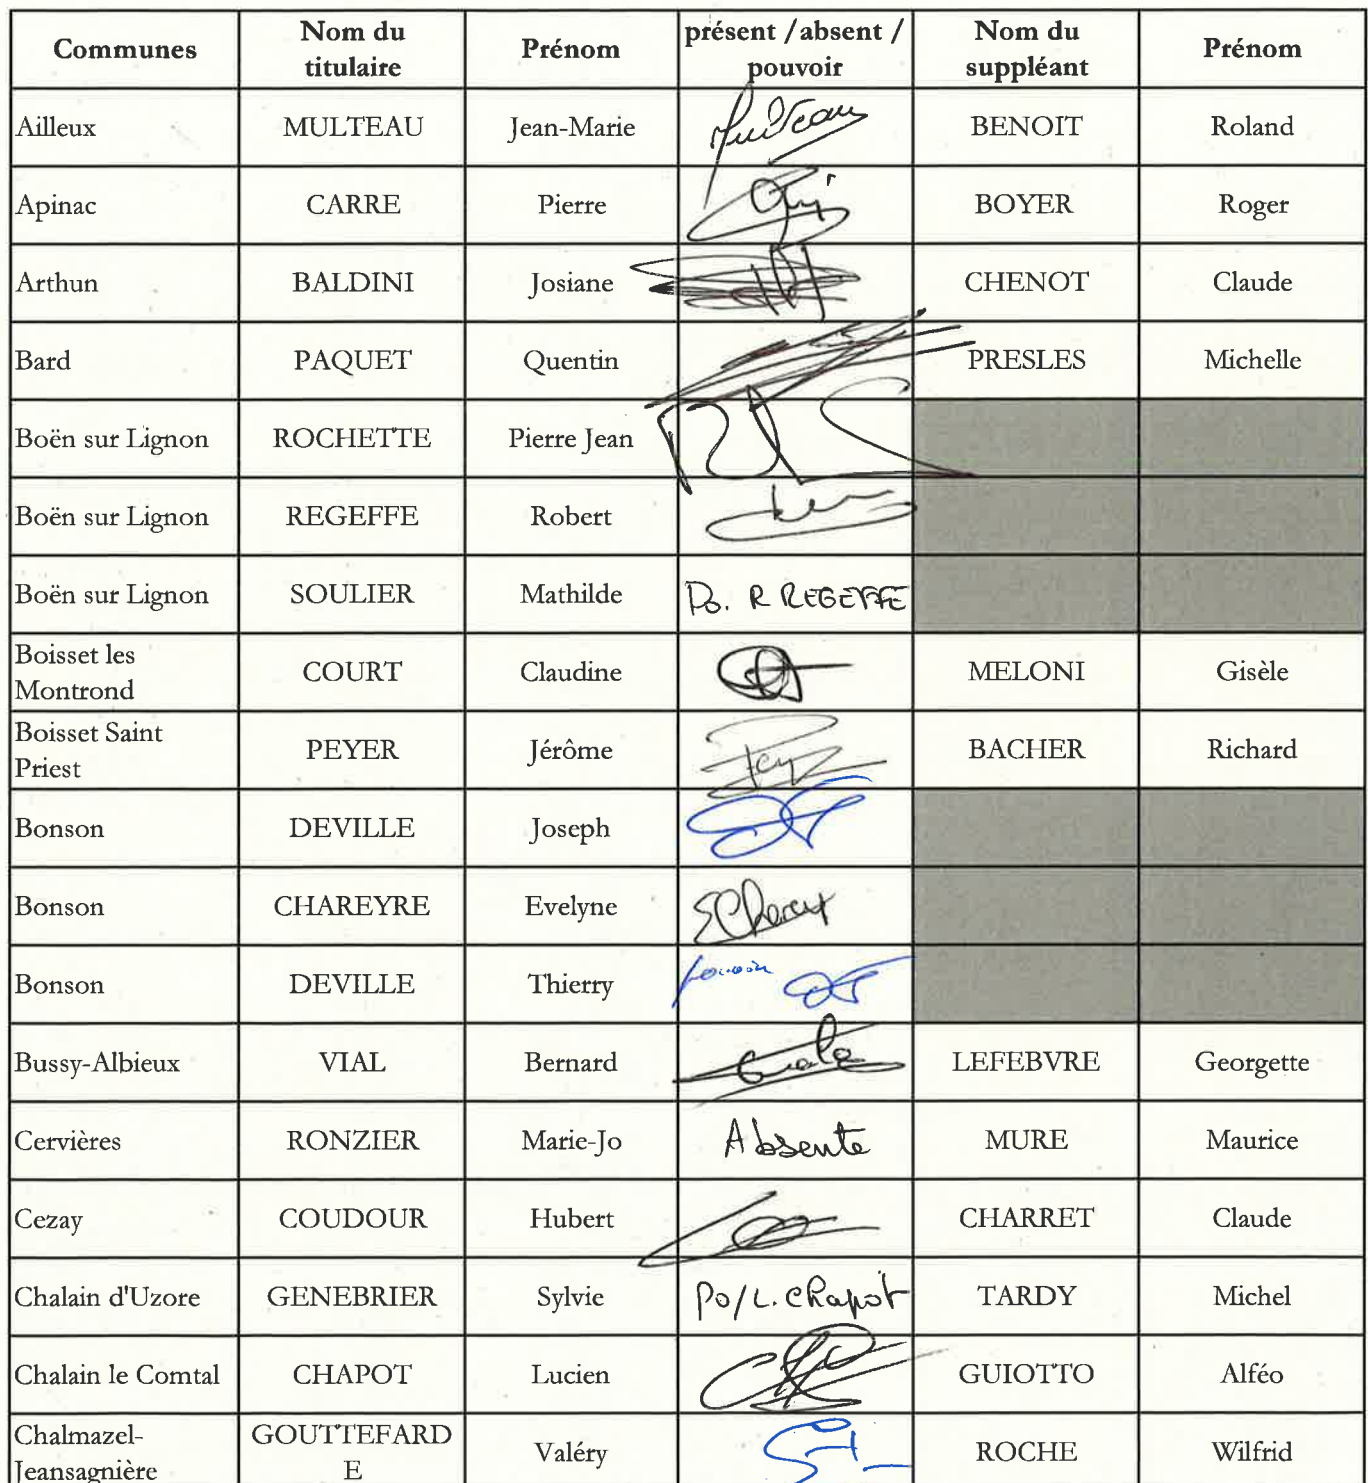 Communes Nom du titulaire Prénom présent / absent / pouvoir Nom du suppléant Prénom
Ailleux MULTEAU Jean-Marie BENOIT Roland
Apinac CARRE Pierre BOYER Roger
Arthun BALDINI Josiane CHENOT Claude
Bard PAQUET Quentin PRESLES Michelle
Boën sur Lignon ROCHETTE Pierre Jean
Boën sur Lignon REGEFFE Robert
Boën sur Lignon SOULIER Mathilde Po. R REGEFFE
Boisset les Montrond COURT Claudine MELONI Gisèle
Boisset Saint Priest PEYER Jérôme BACHER Richard
Bonson DEVILLE Joseph
Bonson CHAREYRE Evelyne
Bonson DEVILLE Thierry pouvoir
Bussy-Albieux VIAL Bernard LEFEBVRE Georgette
Cervières RONZIER Marie-Jo Absente MURE Maurice
Cezay COUDOUR Hubert CHARRET Claude
Chalain d'Uzore GENEBRIER Sylvie Po/L. Chapot TARDY Michel
Chalain le Comtal CHAPOT Lucien GUIOTTO Alféo
Chalmazel-Jeansagnière GOUTTEFARDE Valéry ROCHE Wilfrid